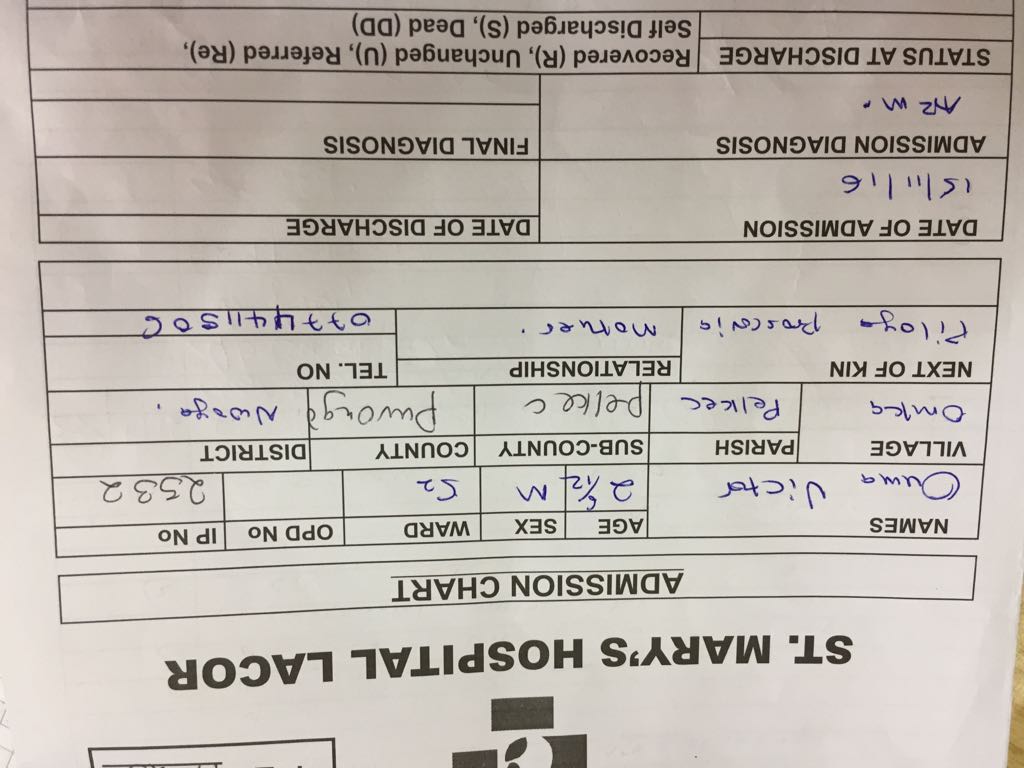 ST. MARY'S HOSPITAL LACOR
ADMISSION CHART
NAMES AGE SEX WARD OPD No IP No
Ouma Victor 2 6/12 M S2 2532
VILLAGE PARISH SUB-COUNTY COUNTY DISTRICT
Omka Pelkec Pelkec Purongo Nwoya.
NEXT OF KIN RELATIONSHIP TEL. NO
Piloya Proscovia Mother. 0774411506
DATE OF ADMISSION DATE OF DISCHARGE
15/11/16
ADMISSION DIAGNOSIS FINAL DIAGNOSIS
ARM.
STATUS AT DISCHARGE Recovered (R), Unchanged (U), Referred (Re),
Self Discharged (S), Dead (DD)